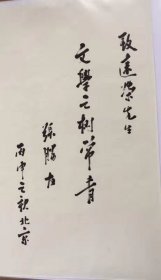 致远荣先生
文學之树常青
丙申之秋北京